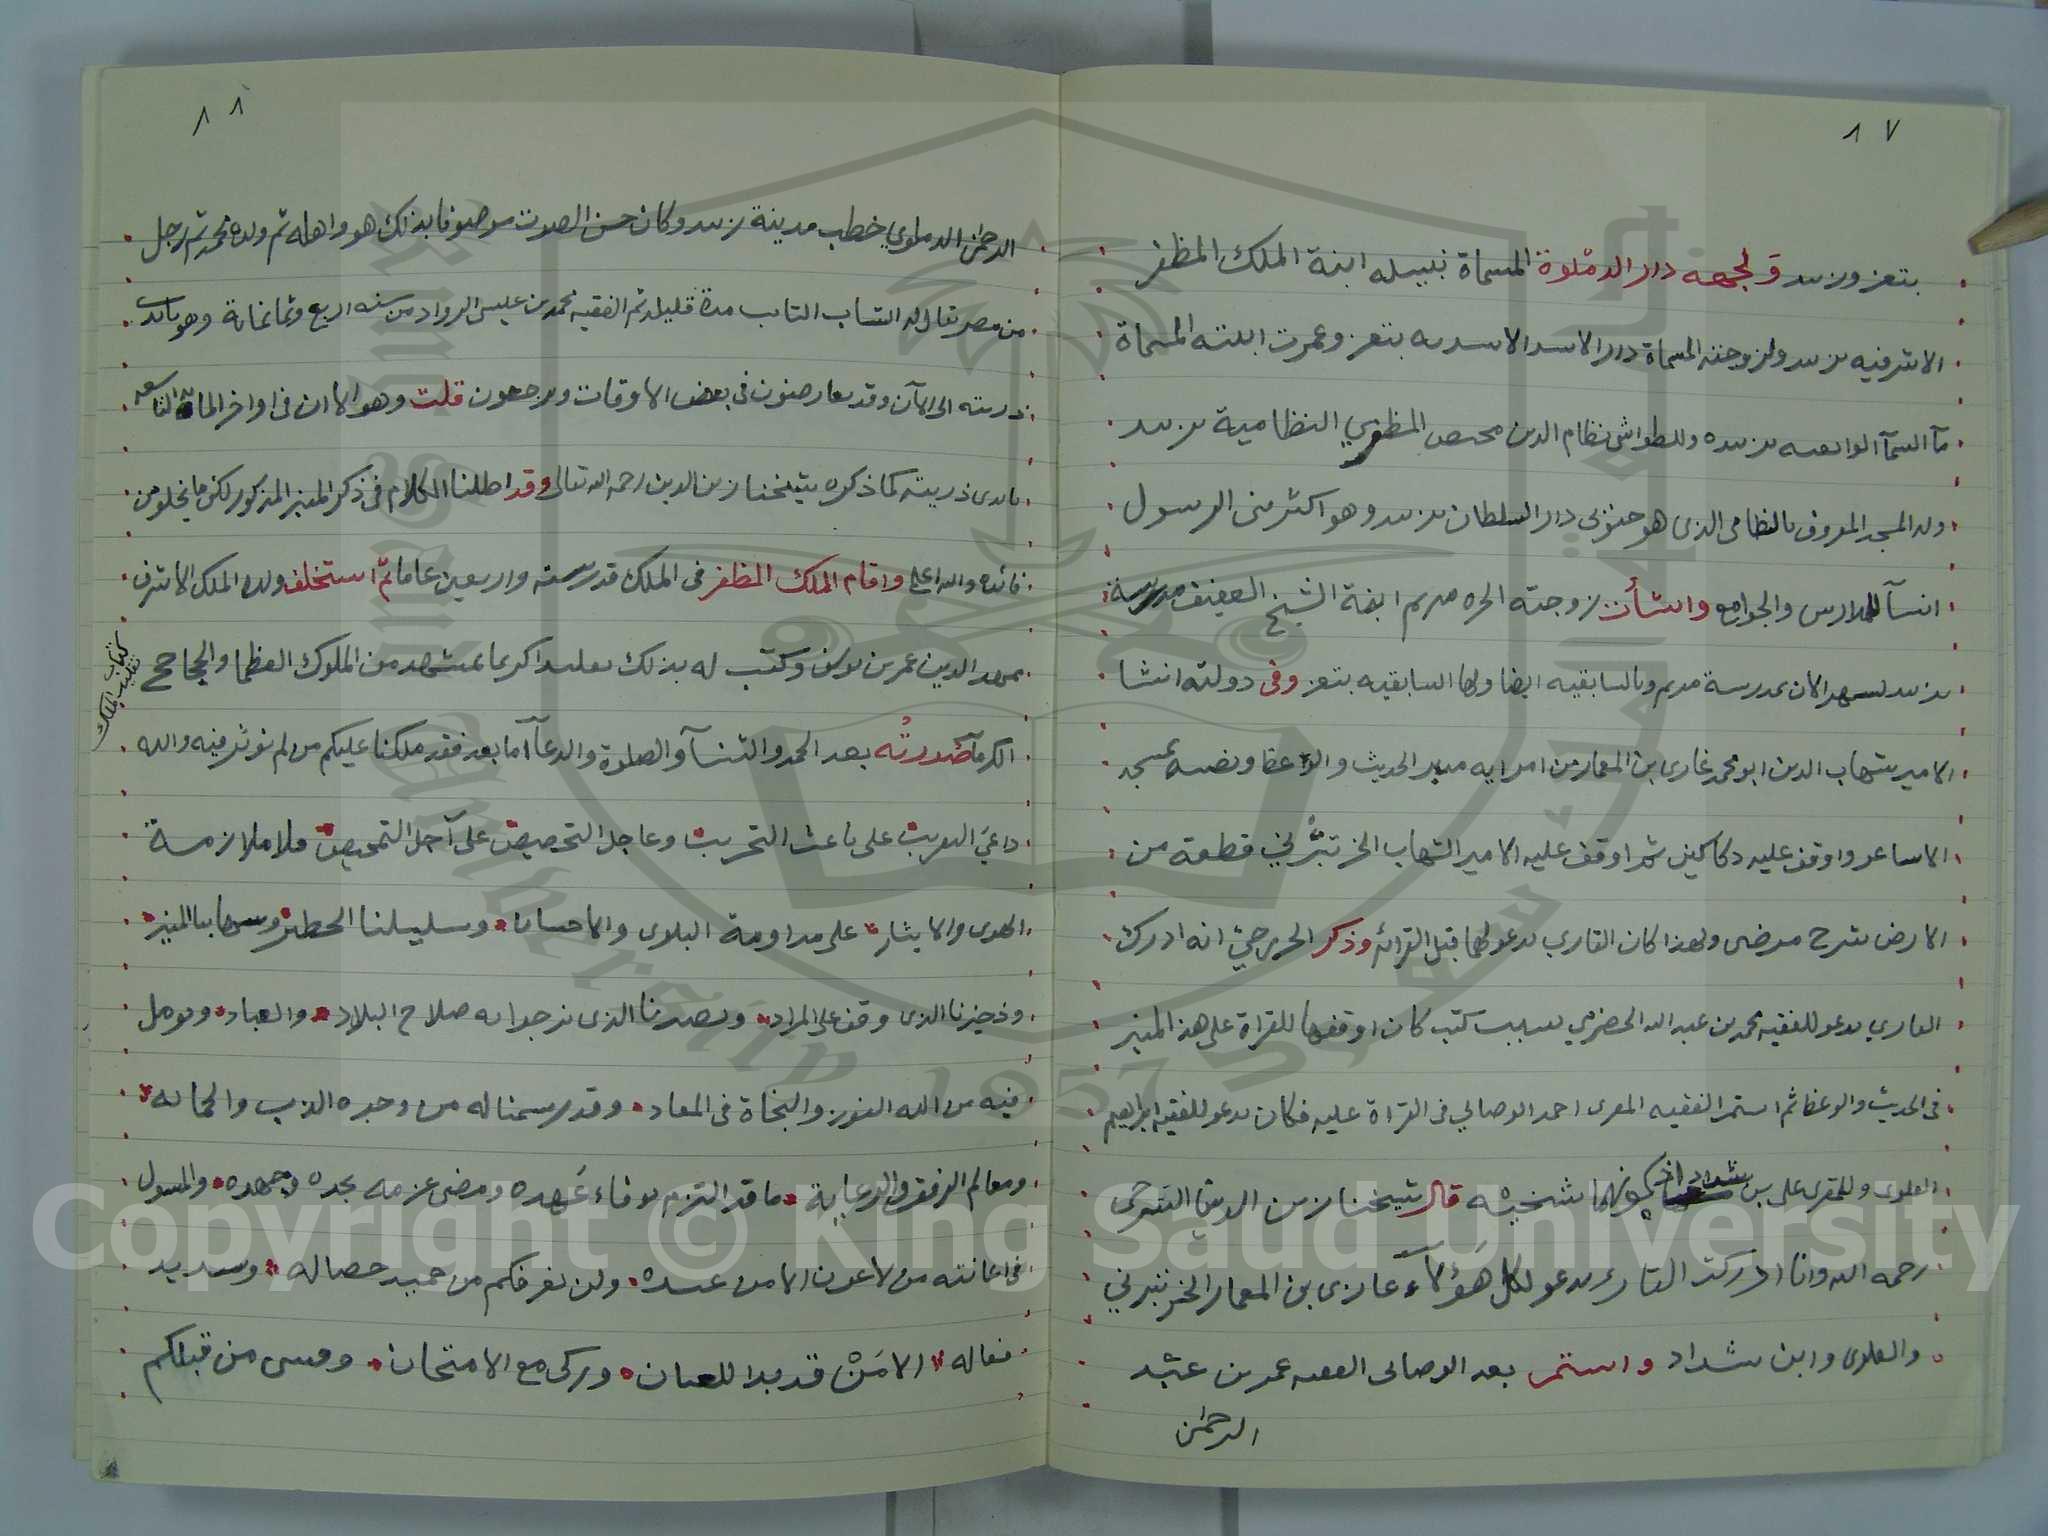 ٨٧
بتعز وزبيد ولجهه دار الدملوة المسماة نبيله ابنة الملك المظفر
الاشرفيه بزبيد ولزوجته المسماة دار الاسد الاسديه بتعز وعمرت ابنته المسماة
مآ السمآ الواثقيه بزبيد وللطواشى نظام الدين مختص المظفري النظامية بزبيد
وله المسجد المعروف بالنظامى الذى هو جنوبى دار السلطان بزبيد وهو اكثر بنى الرسول
انسآ للمدارس والجوامع وانشأت زوجته الحره مريم ابنة الشيخ العفيف مدرسة
بزبيد تشهر الان بمدرسة مريم وبالسابقيه ايضا ولها السابقيه بتعز وفى دولته انشا
الامير شهاب الدين ابو محمد غازى بن المعمار من امرايه منبر الحديث والوعظ ونصبه بمسجد
الاشاعر واوقف عليه دكاكين ثم اوقف عليه الامير الشهاب الخرتبرتي قطعة من
الارض شرح مرضى ولهذا كان القاري يدعو لهما قبل القرائة وذكر الخزرجي انه ادرك
القاري يدعو للفقيه محمد بن عبد الله الحضرمي بسبب كتب كان اوقفها للقراة على هذا المنبر
فى الحديث والوعظ ثم استمر الفقيه المقرى احمد الوصابي فى القراة عليه فكان يدعو للفقيه ابراهيم
العلوى وللمقرى على بن شداد لكونهما شخيه قال شيخنا زين الدين الشرجى
رحمه الله وانا ادركت القارى يدعو لكل هؤلآء غازى بن المعمار الخرتبرتي
والعلوى وابن شداد واستمر بعد الوصابى الفقيه عمر بن عبد
الرحمن
٨٨
الرحمن الدملوي خطيب مدينة زبيد وكان حسن الصوت موصوفا بذلك هو واهله ثم ولده محمد ثم رجل
من مصر يقال له الشاب التايب مدة قليلة ثم الفقيه محمد بن عيسى الرواد من سنه اربع وثمانماية وهو بايدى
ذريته الى الآن وقد يعارضون فى بعض الاوقات ويرجعون قلت وهو الان فى اواخر الماية التاسعه
بايدى ذريته كما ذكره شيخنا زين الدين رحمه الله تعالى وقد اطلنا الكلام فى ذكر المنبر المذكور لكن ما يخلو من
فائده والله اعلم واقام الملك المظفر فى الملك قدر سته واربعين عاما ثم استخلف ولده الملك الاشرف
ممهد الدين عمر بن يوسف وكتب له بذلك تقليدا كريما بمشهد من الملوك العظما والجحاجح
كتاب تقليد الملك
الكرمآ صورته بعد الحمد والثنآ والصلوة والدعآ اما بعد فقد ملكنا عليكم من لم نوثر فيه والله
داعي التقريب على باعث التجريب وعاجل التخصيص على آجل التمحيص ولا ملازمة
الهوى والايثار على مداومة البلوى والاحسان وسليلنا الخطير وشهابنا المنير
وذخيرنا الذى وقف على المراد ونصيرنا الذى نرجوا به صلاح البلاد والعباد ونومل
فيه من الله الفوز والنجاة فى المعاد وقد رسمنا له من وجوه الذب والحمايه
ومعالم الرفق والرعاية ما قد التزم بوفاء عهده ومضى عزمه بجده وجهده والمسول
فى اعانته من لا عون الا من عنده ولن نعرفكم من حميد خصاله وسديد
فعاله الا من قد بدا للعيان وزكى مع الامتحان وفشى من قبلكم
Copyright © King Saud University
King Saud University 1957